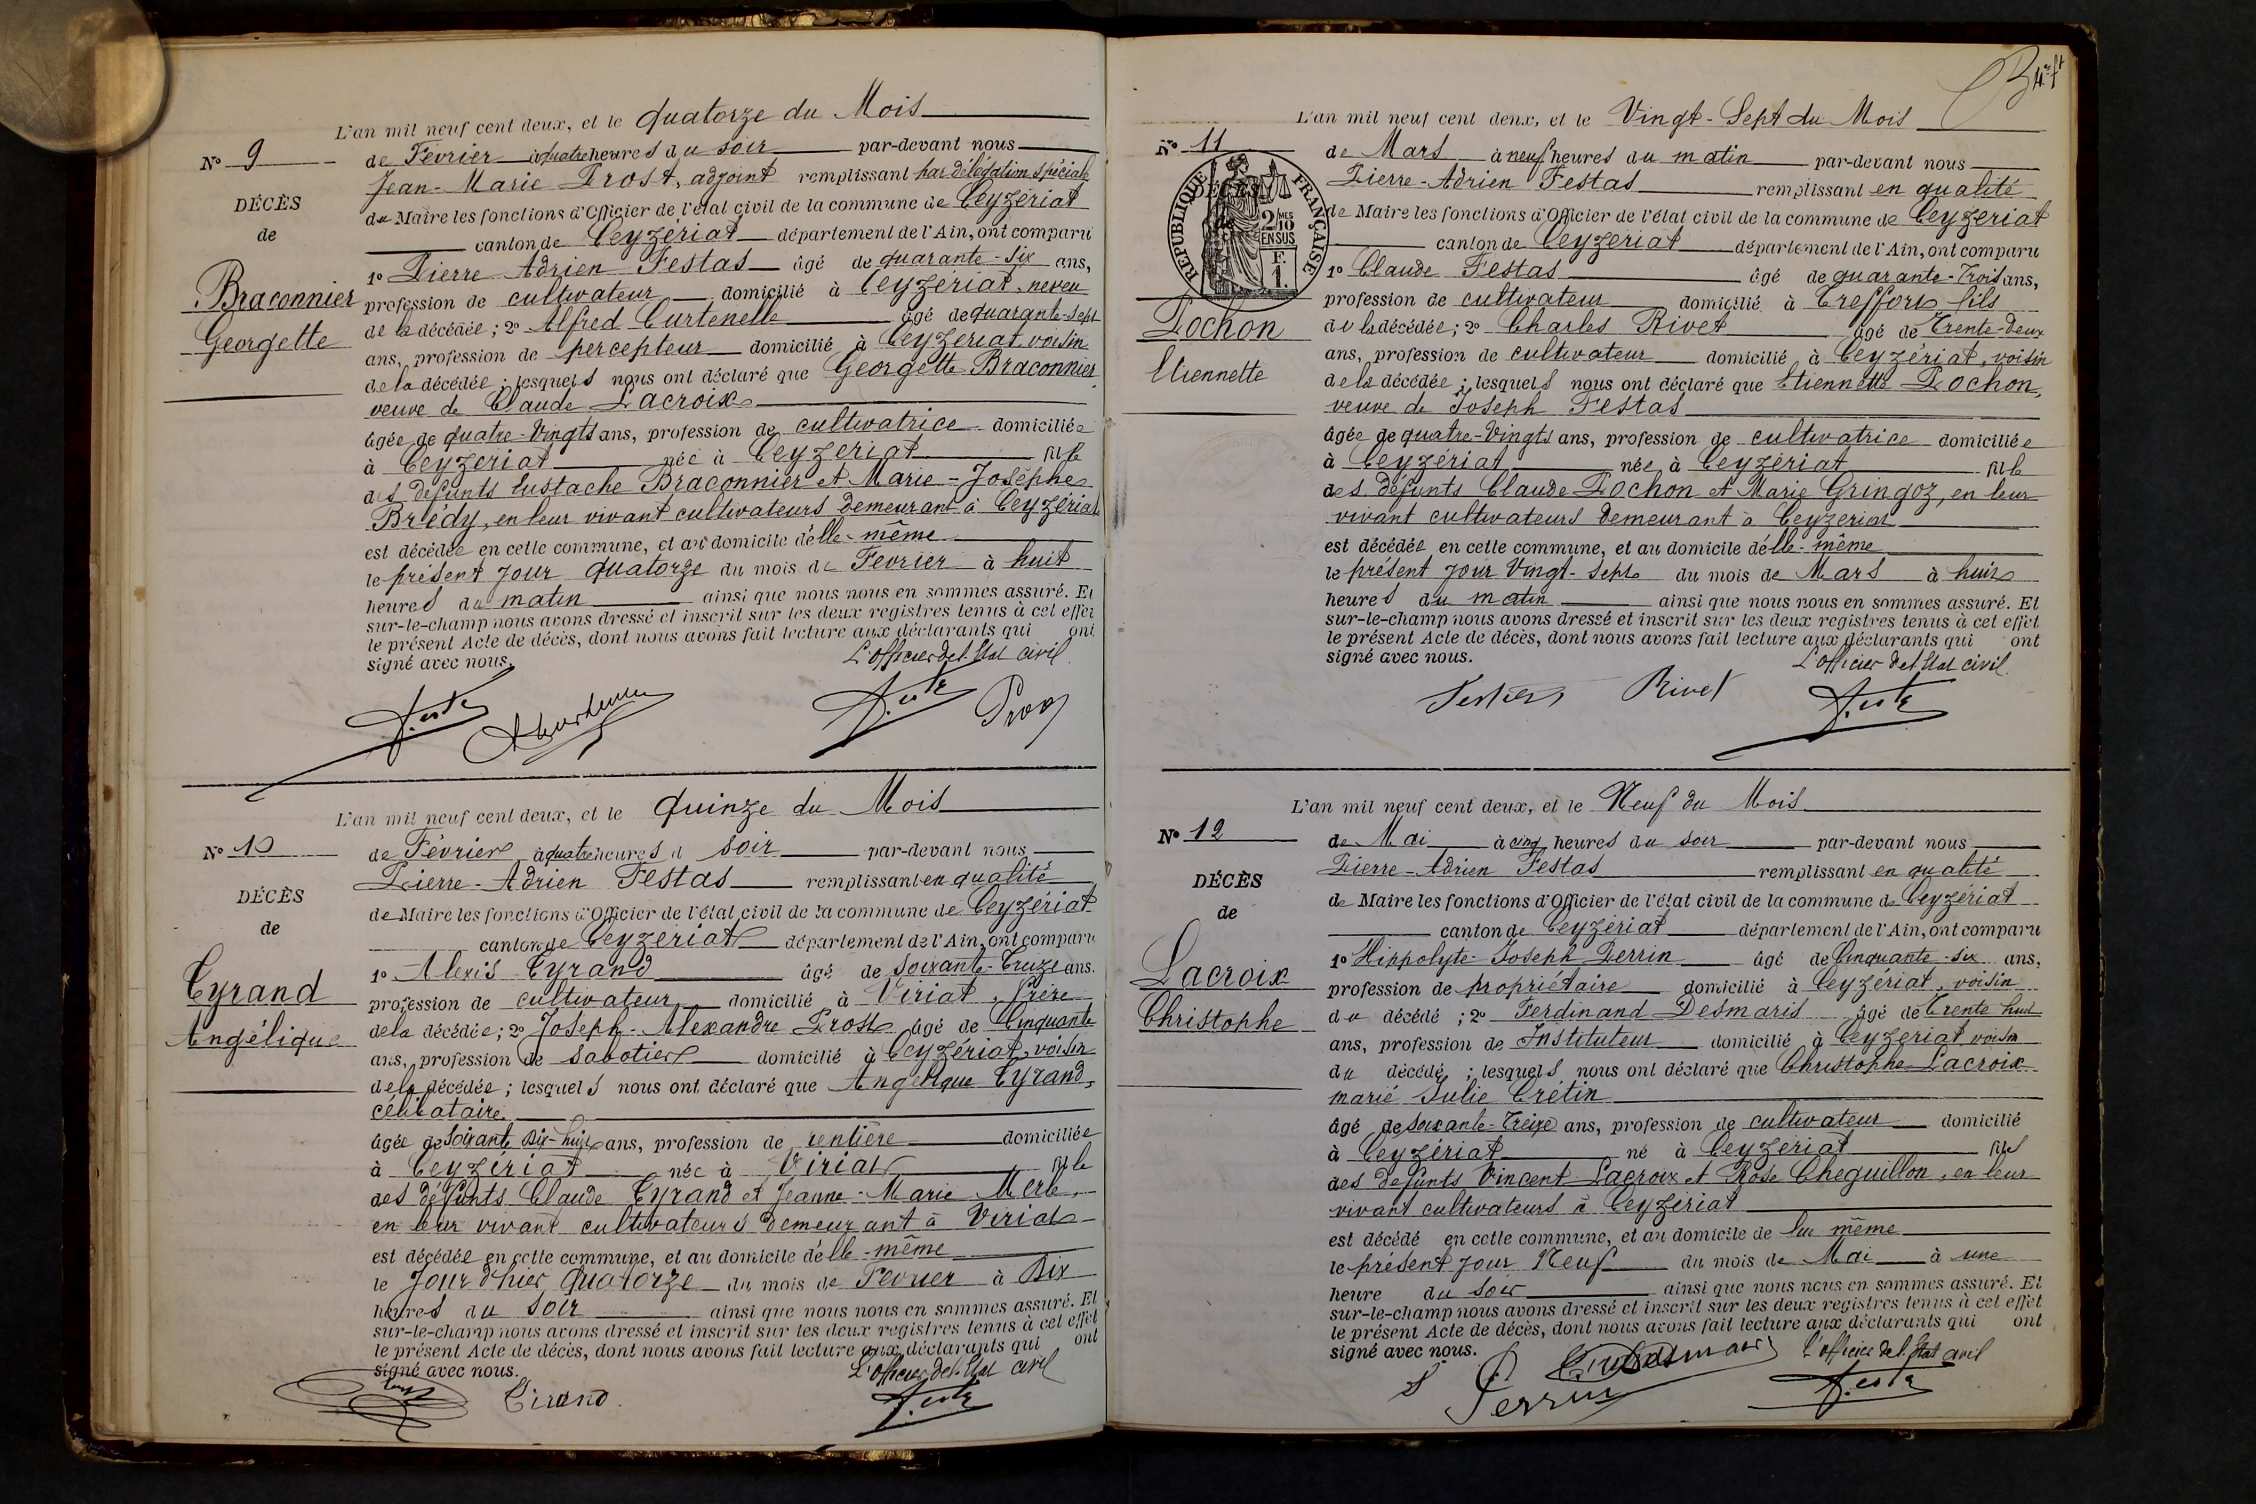 L'an mil neuf cent deux, et le quatorze du Mois
N° 9
de Février à quatre heures du soir par-devant nous
Jean-Marie Prost, adjoint remplissant par délégation spéciale
DÉCÈS
du Maire les fonctions d'Officier de l'état civil de la commune de Ceyzériat
de
canton de Ceyzériat département de l'Ain, ont comparu
1° Pierre Adrien Festas âgé de quarante-six ans,
Braconnier
profession de cultivateur domicilié à Ceyzériat, neveu
Georgette
de la décédée; 2° Alfred Curtenelle âgé de quarante-sept
ans, profession de percepteur domicilié à Ceyzériat voisin
de la décédée; lesquels nous ont déclaré que Georgette Braconnier,
veuve de Claude Lacroix
âgée de quatre-vingts ans, profession de cultivatrice domiciliée
à Ceyzériat née à Ceyzériat fille
des défunts Eustache Braconnier et Marie-Josèphe
Brédy, en leur vivant cultivateurs demeurant à Ceyzériat
est décédée en cette commune, et au domicile d'elle-même
le présent jour quatorze du mois de Février à huit
heures du matin ainsi que nous nous en sommes assuré. Et
sur-le-champ nous avons dressé et inscrit sur les deux registres tenus à cet effet
le présent Acte de décès, dont nous avons fait lecture aux déclarants qui ont
signé avec nous.
L'officier de l'Etat civil
L'an mil neuf cent deux, et le quinze du Mois
N° 10
de Février à quatre heures d soir par-devant nous
Pierre-Adrien Festas remplissant en qualité
DÉCÈS
de Maire les fonctions d'Officier de l'état civil de la commune de Ceyzériat
de
canton de Ceyzériat département de l'Ain, ont comparu
1° Alexis Tyrand âgé de soixante-treize ans.
Tyrand
profession de cultivateur domicilié à Viriat, frère
Angélique
de la décédée; 2° Joseph-Alexandre Prost âgé de Cinquante
ans, profession de sabotier domicilié à Ceyzériat, voisin
de la décédée; lesquels nous ont déclaré que Angélique Tyrand,
célibataire
âgée de soixante dix-huit ans, profession de rentière domiciliée
à Ceyzériat née à Viriat fille
des défunts Claude Tyrand et Jeanne-Marie Merle,
en leur vivant cultivateurs demeurant à Viriat
est décédée en cette commune, et au domicile d'elle-même
le jour d'hier quatorze du mois de Fevrier à Dix
heures du soir ainsi que nous nous en sommes assuré. Et
sur-le-champ nous avons dressé et inscrit sur les deux registres tenus à cet effet
le présent Acte de décès, dont nous avons fait lecture aux déclarants qui ont
signé avec nous.
L'officier de l'Etat civil
Tirand
L'an mil neuf cent deux, et le Vingt-Sept du Mois
N° 11
de Mars à neuf heures du matin par-devant nous
Pierre-Adrien Festas remplissant en qualité
RÉPUBLIQUE FRANÇAISE
2/10 MES
EN SUS
F.
1.
de Maire les fonctions d'Officier de l'état civil de la commune de Ceyzériat
canton de Ceyzériat département de l'Ain, ont comparu
1° Claude Festas âgé de quarante-Trois ans,
profession de cultivateur domicilié à Treffort fils
Pochon
de la décédée; 2° Charles Rivet âgé de Trente-deux
Etiennette
ans, profession de cultivateur domicilié à Ceyzériat, voisin
de la décédée; lesquels nous ont déclaré que Etiennette Pochon,
veuve de Joseph Festas
âgée de quatre-Vingts ans, profession de cultivatrice domiciliée
à Ceyzériat née à Ceyzériat fille
des défunts Claude Pochon et Marie Gringoz, en leur
vivant cultivateurs demeurant à Ceyzeriat
est décédée en cette commune, et au domicile d'elle-même
le présent jour Vingt-Sept du mois de Mars à huit
heures du matin ainsi que nous nous en sommes assuré. Et
sur-le-champ nous avons dressé et inscrit sur les deux registres tenus à cet effet
le présent Acte de décès, dont nous avons fait lecture aux déclarants qui ont
signé avec nous.
L'officier de l'Etat civil
Rivet
L'an mil neuf cent deux, et le Neuf du Mois
N° 12
de Mai à cinq heures du soir par-devant nous
Pierre-Adrien Festas remplissant en qualité
DÉCÈS
de Maire les fonctions d'Officier de l'état civil de la commune de Ceyzériat
de
canton de Ceyzériat département de l'Ain, ont comparu
1° Hippolyte-Joseph Perrin âgé de Cinquante-six ans,
Lacroix
profession de propriétaire domicilié à Ceyzériat, voisin
Christophe
du décédé; 2° Ferdinand Desmaris âgé de Trente huit
ans, profession de Instituteur domicilié à Ceyzeriat voisin
du décédé; lesquels nous ont déclaré que Christophe Lacroix
marié Julie Crétin
âgé de soixante-Treize ans, profession de cultivateur domicilié
à Ceyzériat né à Ceyzériat fils
des défunts Vincent Lacroix et Rose Cheguillon, en leur
vivant cultivateurs à Ceyzériat
est décédé en cette commune, et au domicile de lui même
le présent jour Neuf du mois de Mai à une
heure du soir ainsi que nous nous en sommes assuré. Et
sur-le-champ nous avons dressé et inscrit sur les deux registres tenus à cet effet
le présent Acte de décès, dont nous avons fait lecture aux déclarants qui ont
signé avec nous.
L'officier de l'Etat civil
Perrin